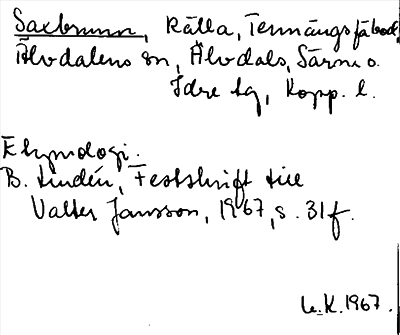 Saxbrunn, Källa, Tennängs fäbod
Älvdalens sn, Älvdals, Särna o.
Idre tg, Kopp. l.
Etymologi.
B. Lindén, Festskrift till
Valter Jansson, 1967, s. 31f.
L.K. 1967.